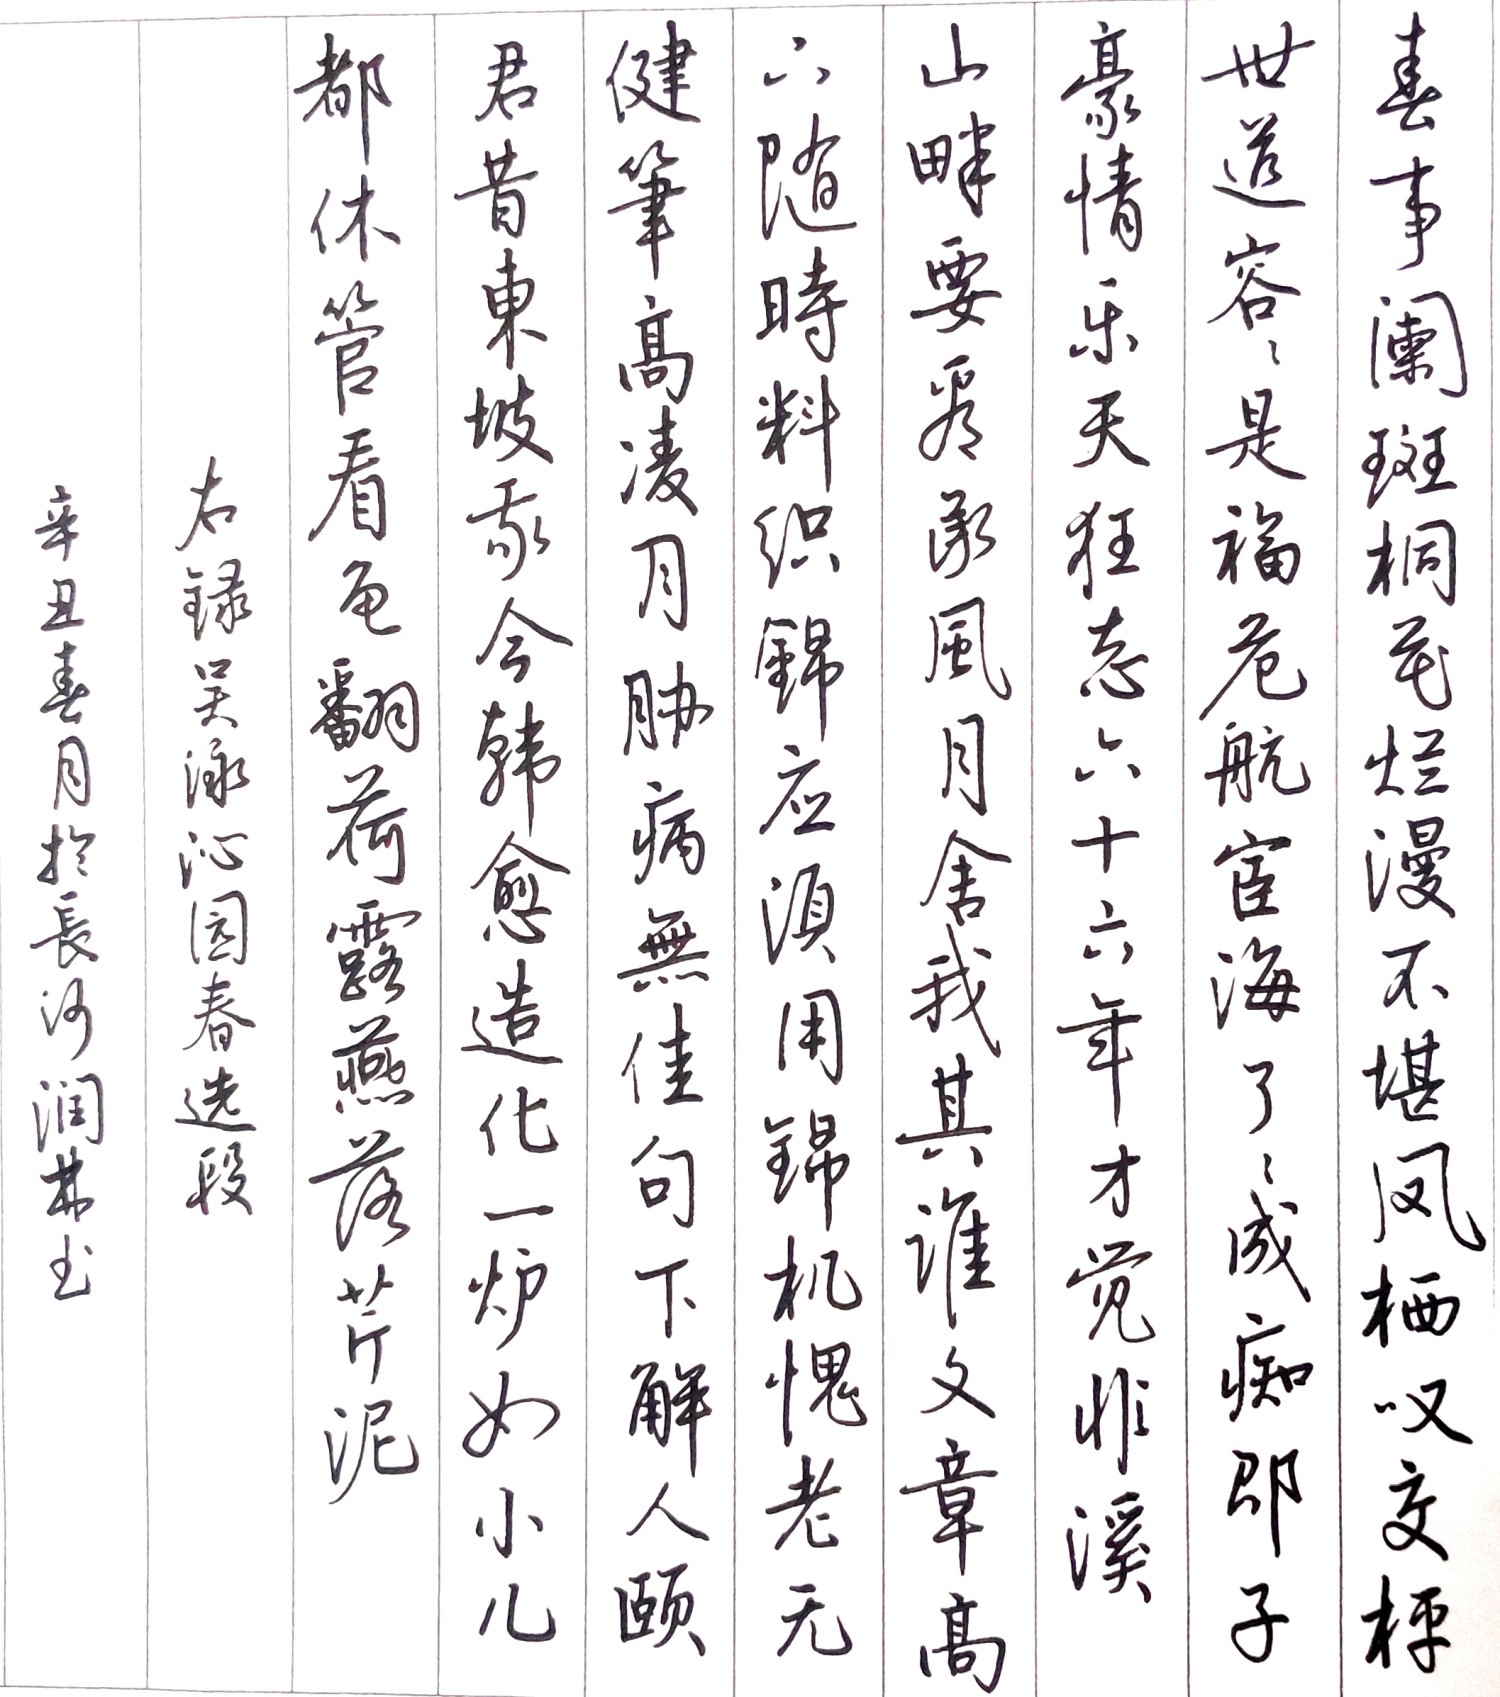 春事阑斑桐花烂漫不堪凤栖叹交枰
世道容〻是福危航宦海了〻成痴郎子
豪情乐天狂志六十六年才觉非溪
山畔要看承風月舍我其谁文章高
六随時料织錦应须用錦机愧老无
健筆高凌月胁病無佳句下解人颐
君昔東坡我今韩愈造化一炉如小儿
都休管看龟翻荷露燕落芹泥
右録吴泳沁园春选段
辛丑春月於長沙润林书